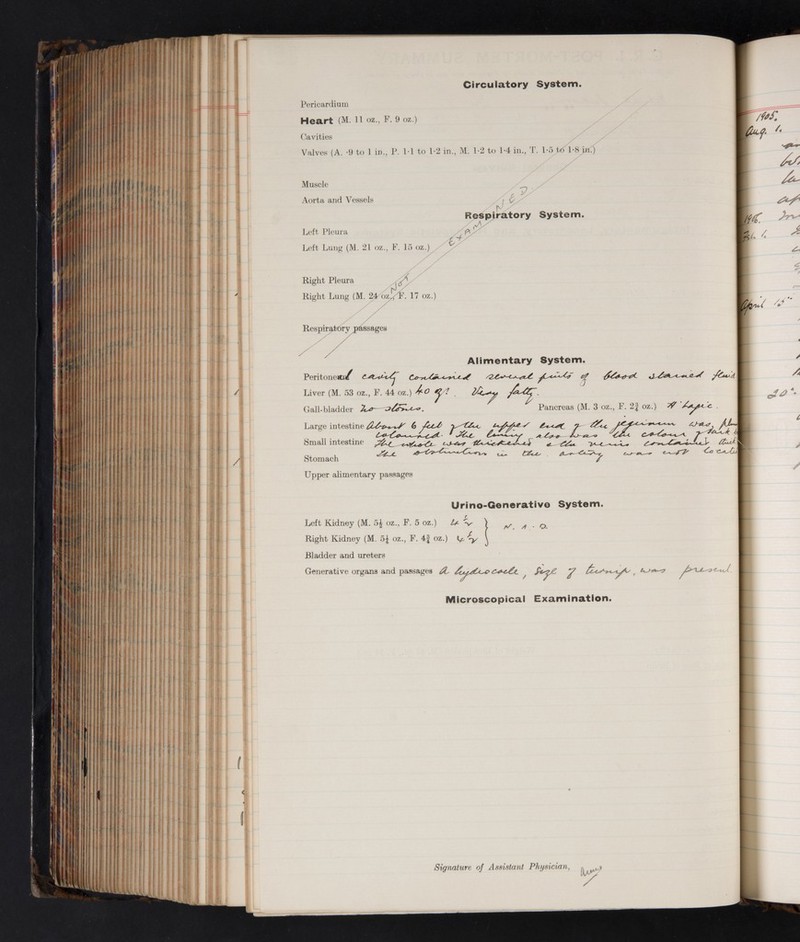 Circulatory System.
Pericardium
Heart (M. 11 oz., F. 9 oz.)
Cavities
Valves (A. ·9 to 1 in., P. 1·1 to 1·2 in., M. 1·2 to 1·4 in., T. 1·5 to 1·8 in.)
Muscle
Aorta and Vessels
NOT EXAMINED
Respiratory System.
Left Pleura
Left Lung (M. 21 oz., F. 15 oz.)
Right Pleura
Right Lung (M. 24 oz., F. 17 oz.)
Respiratory passages
Alimentary System.
Peritoneal cavity contained several pints of blood stained fluid
Liver (M. 53 oz., F. 44 oz.) 40 oz. Very fatty.
Gall-bladder no stones. Pancreas (M. 3 oz., F. 2¾ oz.)
Large intestine About 6 feet of the upper end of the jejeunum was
coloured. The lining also was the colour of dark
Small intestine The whole was thickened & the veins contained
The obstruction in the artery was not
Stomach
Upper alimentary passages
Urino-Generative System.
Left Kidney (M. 5½ oz., F. 5 oz.) 4½
Right Kidney (M. 5¼ oz., F. 4¾ oz.) 4½
Bladder and ureters
Generative organs and passages A hydrocoele, size of turnip, was present
Microscopical Examination.
Signature of Assistant Physician,
1905.
Aug. 1.
April 15
20